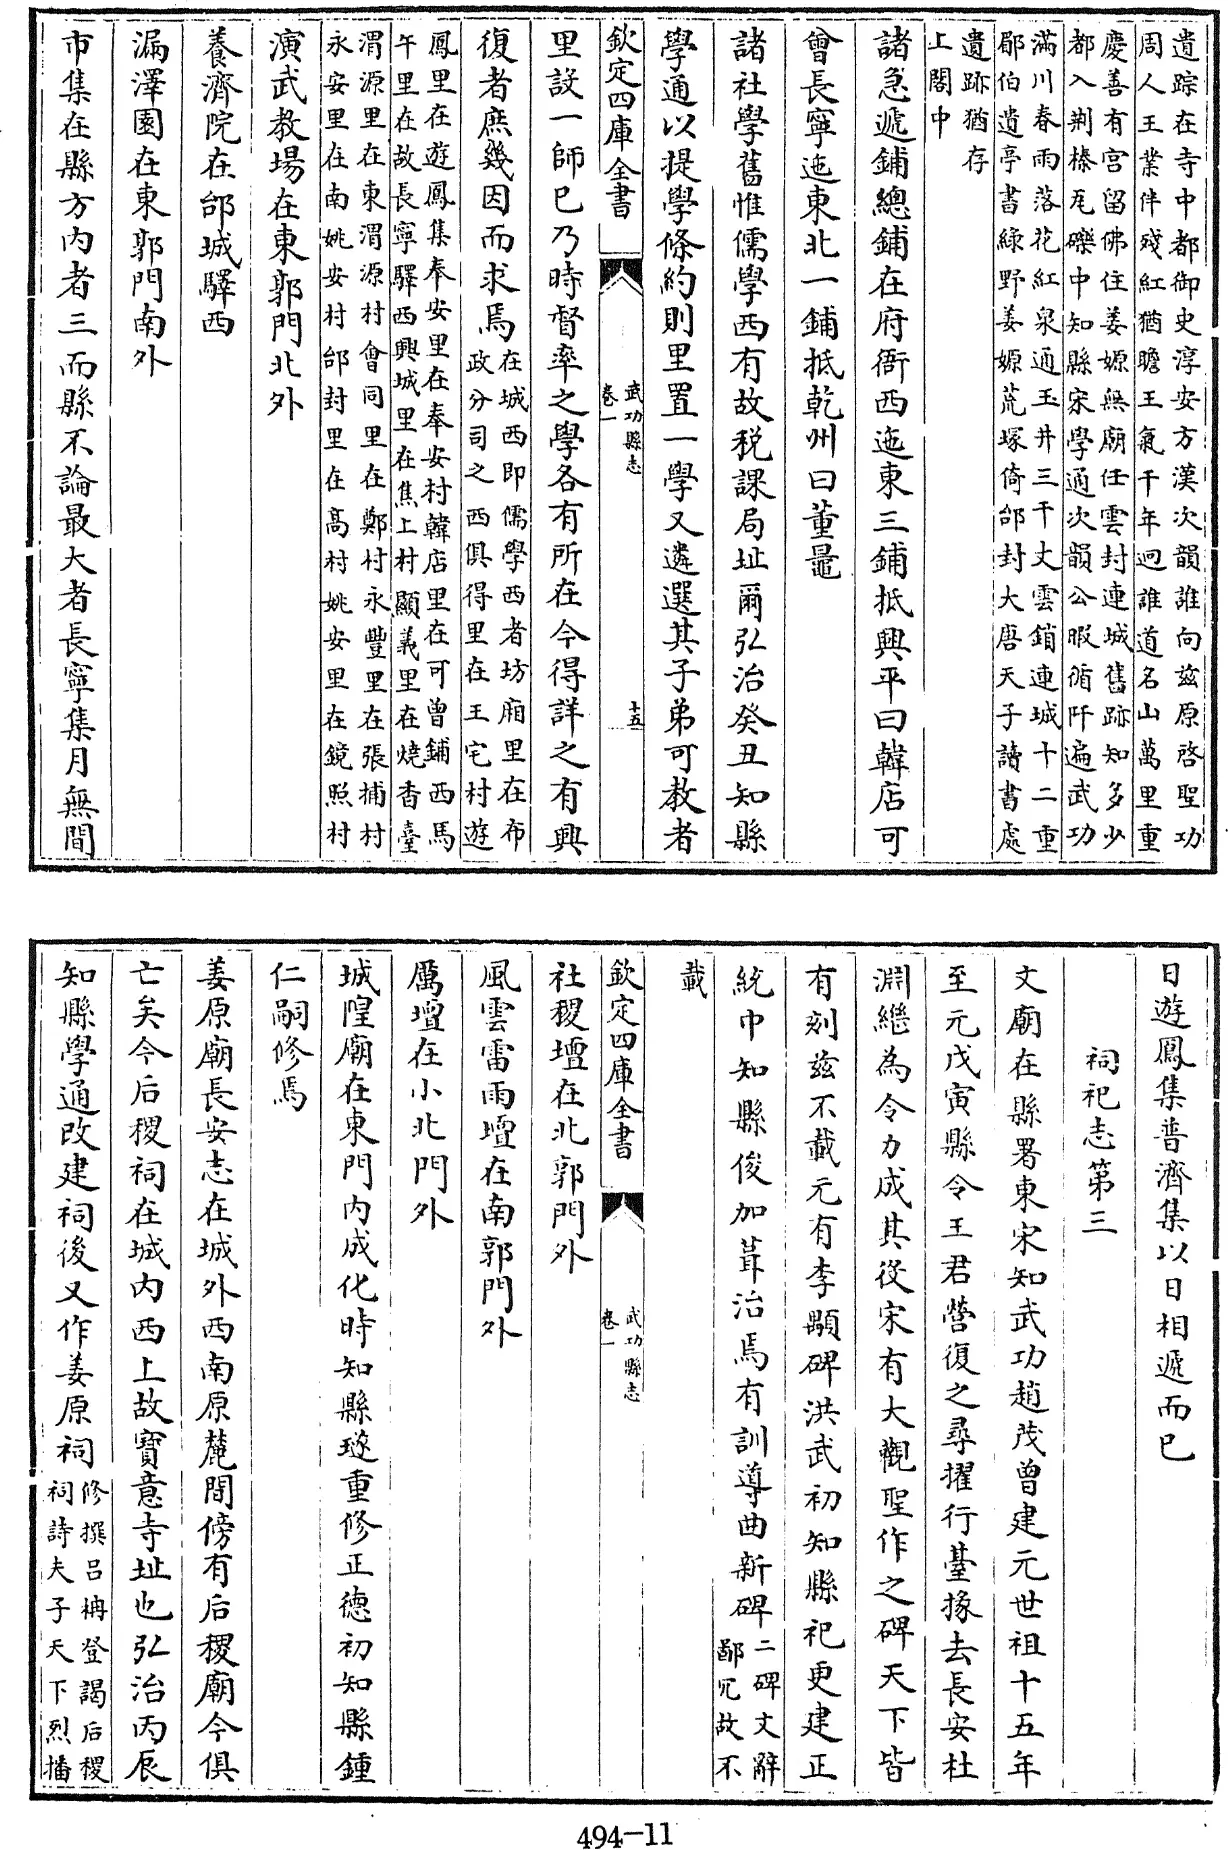 遺踪在寺中都御史淳安方漢次韻誰向兹原啓聖功
周人王業伴殘紅猶瞻王氣千年迥誰道名山萬里重
慶善有宮留佛住姜嫄無廟任雲封連城舊跡知多少
都入荆榛瓦礫中知縣宋學通次韻公暇循阡遍武功
滿川春雨落花紅泉通玉井三千丈雲鎖連城十二重
郿伯遺亭書綠野姜嫄荒塚倚邰封大唐天子讀書處
遺跡猶存
上閣中
諸急遞鋪總鋪在府衙西迤東三鋪抵興平曰韓店可
曾長寧迤東北一鋪抵乾州曰董鼂
諸社學舊惟儒學西有故稅課局址爾弘治癸丑知縣
學通以提學條約則里置一學又遴選其子弟可教者
欽定四庫全書
武功縣志
卷一
十五
里設一師已乃時督率之學各有所在今得詳之有興
復者庶幾因而求焉
在城西即儒學西者坊廂里在布
政分司之西俱得里在王宅村遊
鳳里在遊鳳集奉安里在奉安村韓店里在可曾鋪西馬
午里在故長寧驛西興城里在焦上村顯義里在燒香臺
渭源里在東渭源村會同里在鄭村永豐里在張捕村
永安里在南姚安村邰封里在高村姚安里在鏡照村
演武教場在東郭門北外
養濟院在邰城驛西
漏澤園在東郭門南外
市集在縣方内者三而縣不論最大者長寧集月無間
日遊鳳集普濟集以日相遞而已
祠祀志第三
文廟在縣署東宋知武功趙茂曾建元世祖十五年
至元戊寅縣令王君營復之尋擢行臺掾去長安杜
淵繼為令力成其役宋有大觀聖作之碑天下皆
有刻兹不載元有李顒碑洪武初知縣祀更建正
統中知縣俊加葺治焉有訓導曲新碑
二碑文辭
鄙冗故不
載
欽定四庫全書
武功縣志
卷一
社稷壇在北郭門外
風雲雷雨壇在南郭門外
厲壇在小北門外
城隍廟在東門内成化時知縣璲重修正德初知縣鍾
仁嗣修焉
姜原廟長安志在城外西南原麓間傍有后稷廟今俱
亡矣今后稷祠在城内西上故寶意寺址也弘治丙辰
知縣學通改建祠後又作姜原祠
修撰呂柟登謁后稷
祠詩夫子天下烈播
494-11